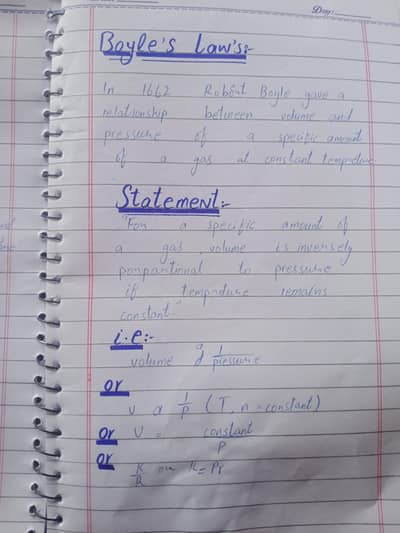 Day:
Boyle's Law's:-
In 1662 Robert Boyle gave a
relationship between volume and
pressure of a specific amount
of a gas at constant temprature
Statement:-
"For a specific amount of
a gas, volume is inversely
porpartional to pressure
if temprature remains
constant"
i.e:-
volume α 1/pressure
or
v α 1/P (T, n = constant)
or V = constant/P
or K/P or K = Pv